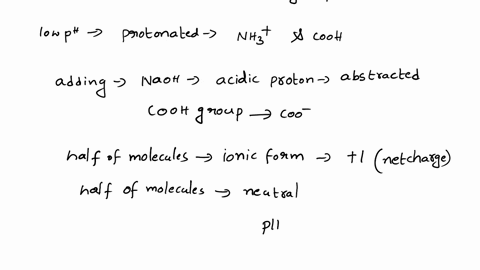 low pH → protonated → NH3+ & COOH
adding → NaOH → acidic proton → abstracted
COOH group → COO-
half of molecules → ionic form → +1 (net charge)
half of molecules → neutral
pH